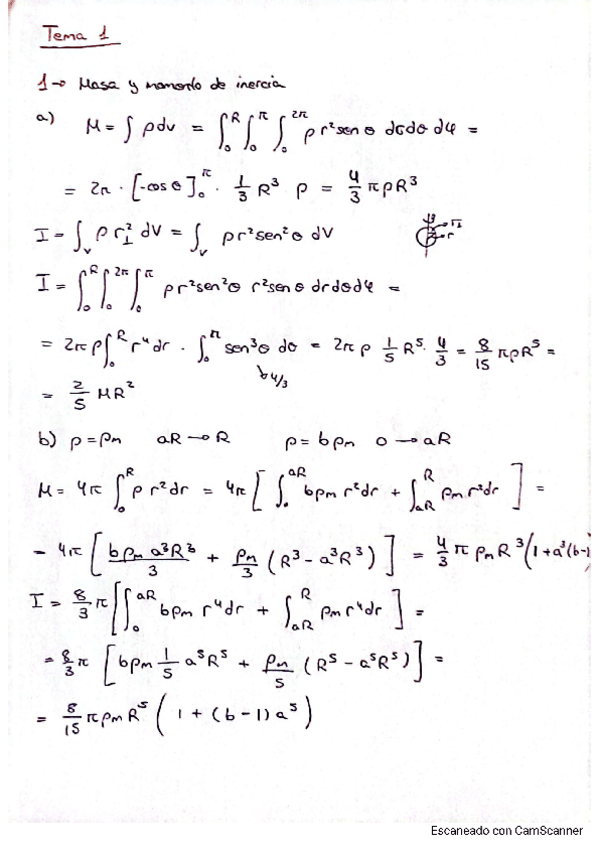 Tema 1
1→ Masa y momento de inercia
a) M = ∫ ρdv = ∫₀ᴿ ∫₀^π ∫₀^2π ρ r² sen θ drdθ dφ =
= 2π · [-cos θ]₀^π · 1/3 R³ ρ = 4/3 πρR³
I = ∫ᵥ ρ r⊥² dV = ∫ᵥ ρr² sen² θ dV
I = ∫₀ᴿ ∫₀^2π ∫₀^π ρ r² sen² θ r² sen θ drdθdφ =
= 2π ρ ∫₀ᴿ r⁴ dr · ∫₀^π sen³θ dθ = 2π ρ 1/5 R⁵ · 4/3 = 8/15 πρR⁵ =
↳ 4/3
= 2/5 MR²
b) ρ = ρm aR → R ρ = bρm 0 → aR
M = 4π ∫₀ᴿ ρ r² dr = 4π [ ∫₀^aR bρm r² dr + ∫_aR^R ρm r² dr ] =
= 4π [ bρm a³R³/3 + ρm/3 (R³ - a³R³) ] = 4/3 π ρm R³ (1 + a³(b-1
I = 8/3 π [ ∫₀^aR bρm r⁴ dr + ∫_aR^R ρm r⁴ dr ] =
= 8/3 π [ bρm 1/5 a⁵R⁵ + ρm/5 (R⁵ - a⁵R⁵) ] =
= 8/15 π ρm R⁵ ( 1 + (b-1) a⁵ )
Escaneado con CamScanner